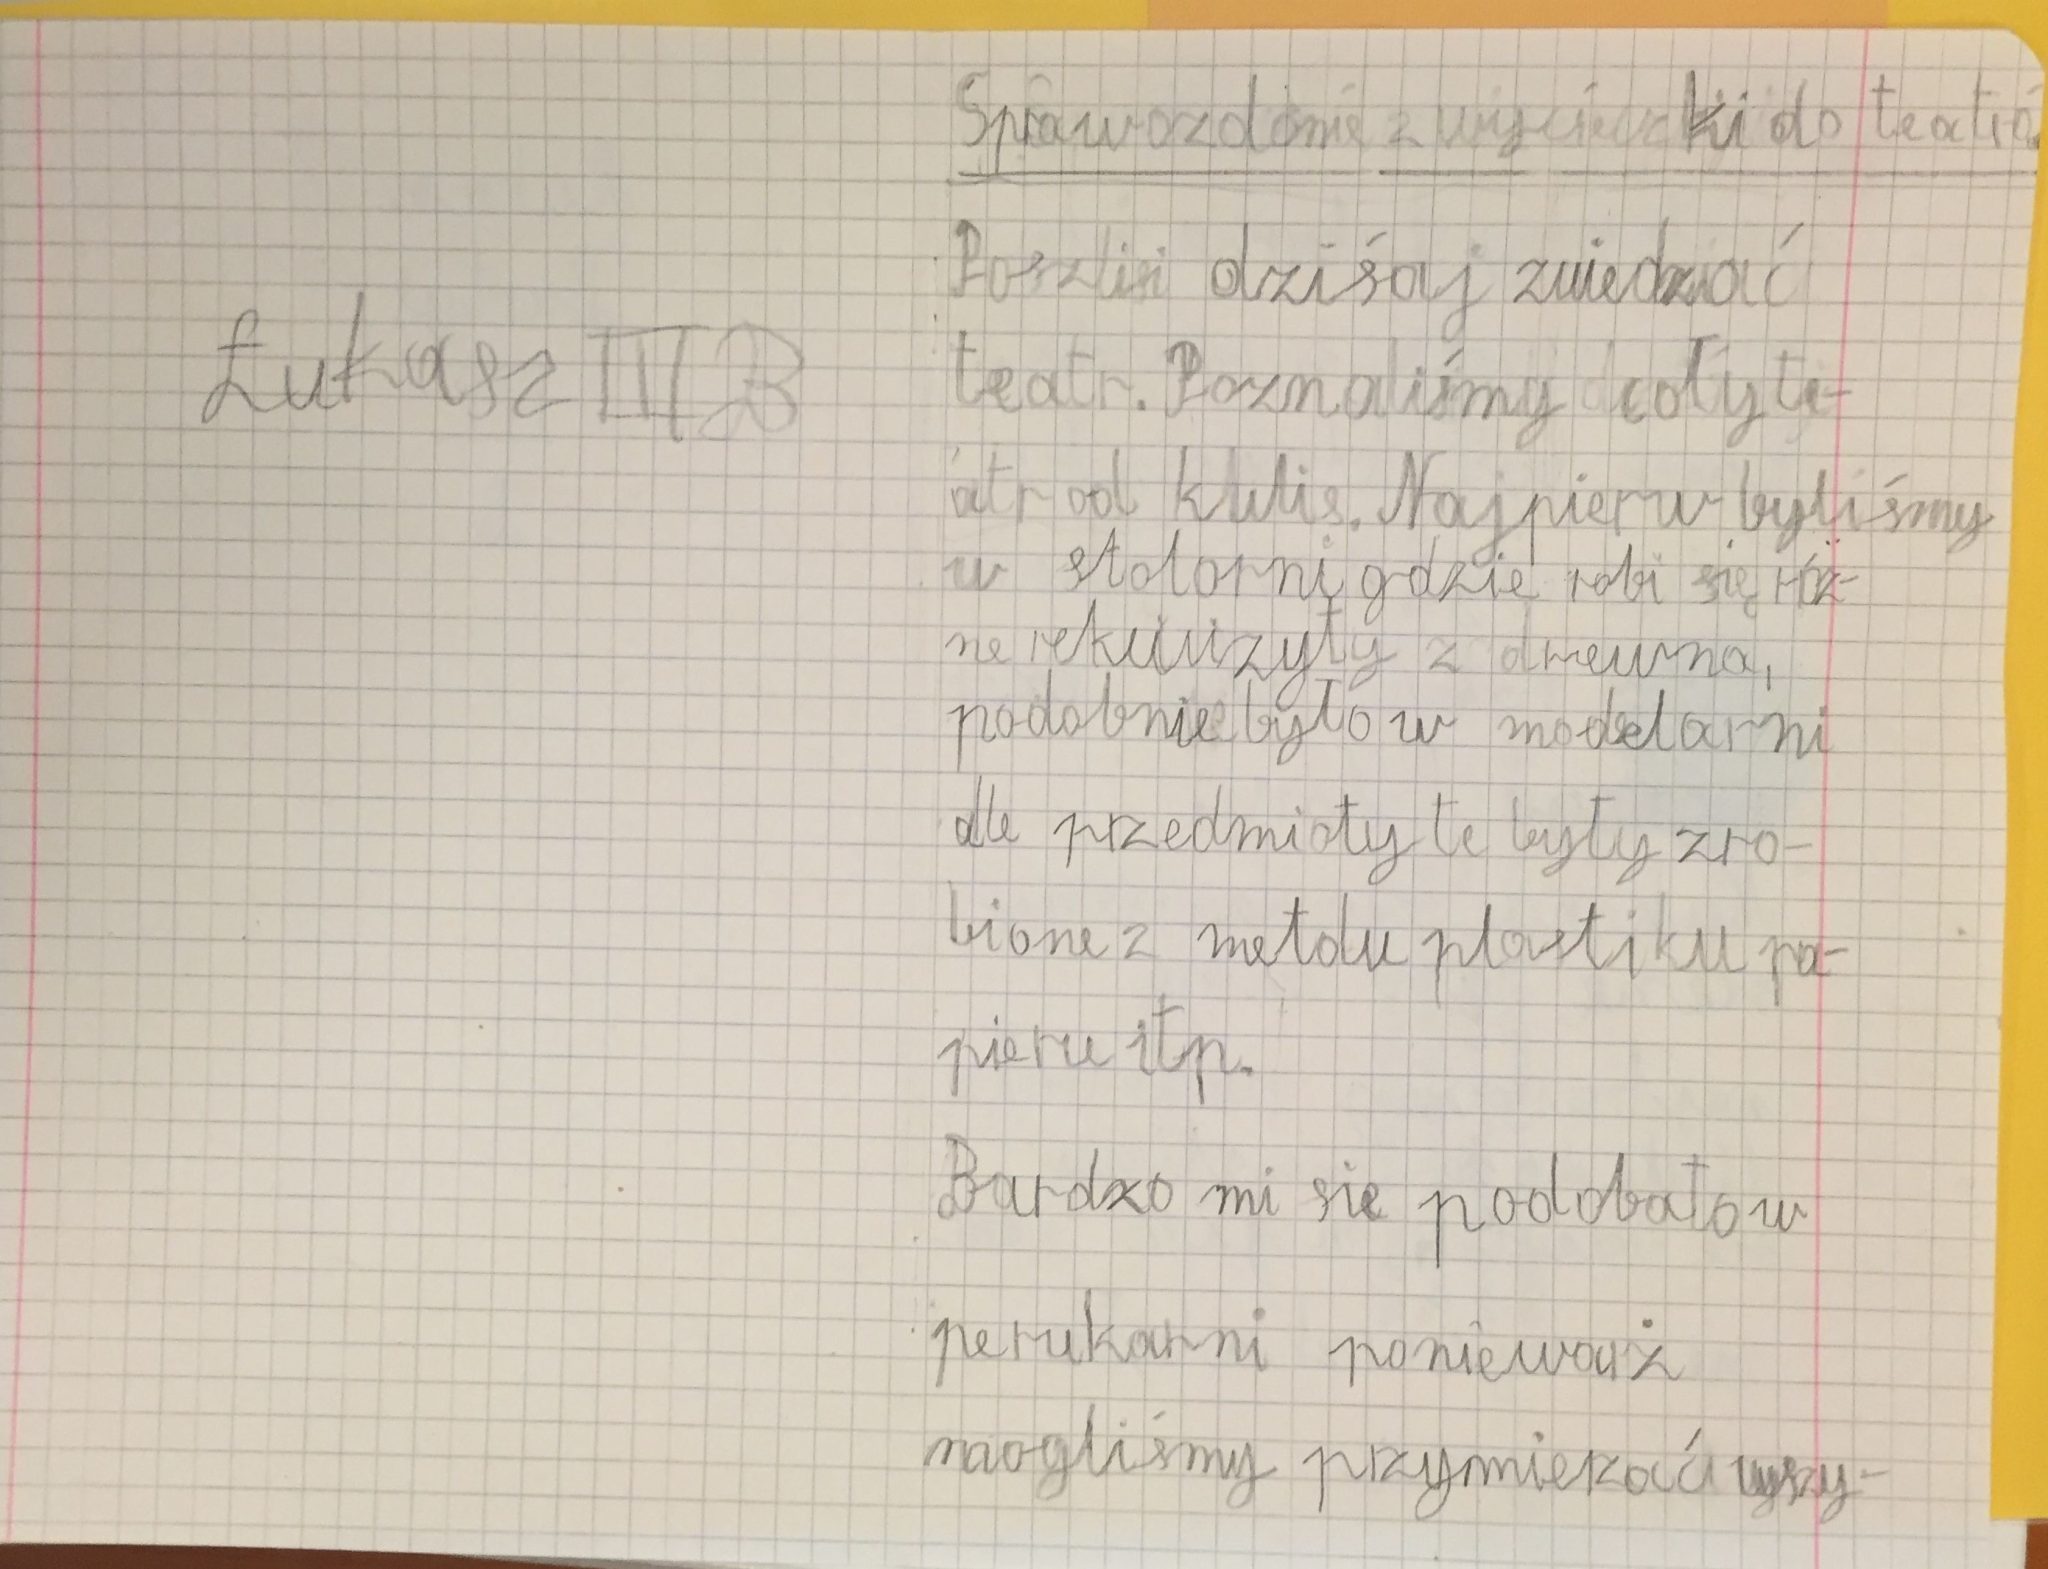 Sprawozdanie z wycieczki do teatru
Łukasz III B
Poszlisi dzisaj zwiedzać
teatr. Poznaliśmy cały te-
atr od kulis. Najpierw byliśmy
w stolarni gdzie robi się róż-
ne rekwizyty z drewna,
podobnie było w modelarni
ale przedmioty te były zro-
bione z metalu plastiku pa-
pieru itp.
Bardzo mi się podobało w
perukarni ponieważ
mogliśmy przymierzać wszy-